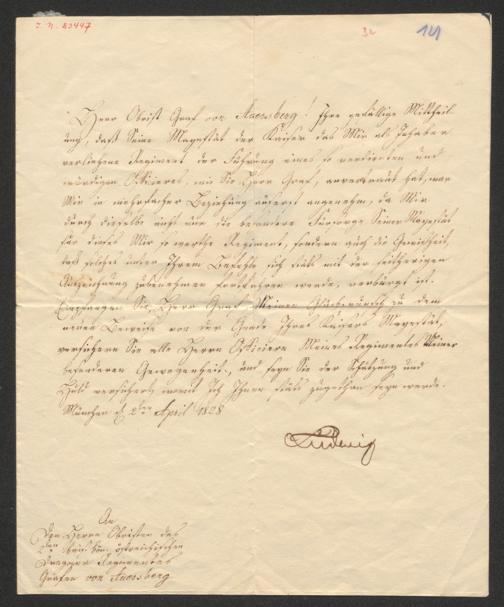 I. N. 83447
32
121
Herr Obrist Graf von Auersberg! Ihre gefällige Mittheil-
ung, daß Seine Majestät der Kaiser das Mir als Inhaber
verliehene Regiment der Führung eines so verdienten und
würdigen Offiziers, wie Sie Herr Graf, anvertraut hat, war
Mir in mehrfacher Beziehung äußerst angenehm, da Mir
durch dieselbe nicht nur die besondere Fürsorge Seiner Majestät
für dieses Mir so werthe Regiment, sondern auch die Gewißheit,
daß solches unter Ihrem Befehle sich stets mit der seitherigen
Auszeichnung zu benehmen fortfahren werde, verbürgt ist.
Empfangen Sie, Herr Graf Meinen Glückwunsch zu dem
neuen Beweise von der Gnade Ihres Kaisers Majestät,
versichern Sie alle Herrn Offiziere Meines Regimentes Meiner
besonderen Gewogenheit, und seyn Sie der Schätzung und
Huld versichert womit Ich Ihnen stets zugethan seyn werde.
München d. 2ten April 1828
Ludwig
An
den Herrn Obristen des
2ten östreichischen
Dragoner Regimentes
Grafen von Auersberg